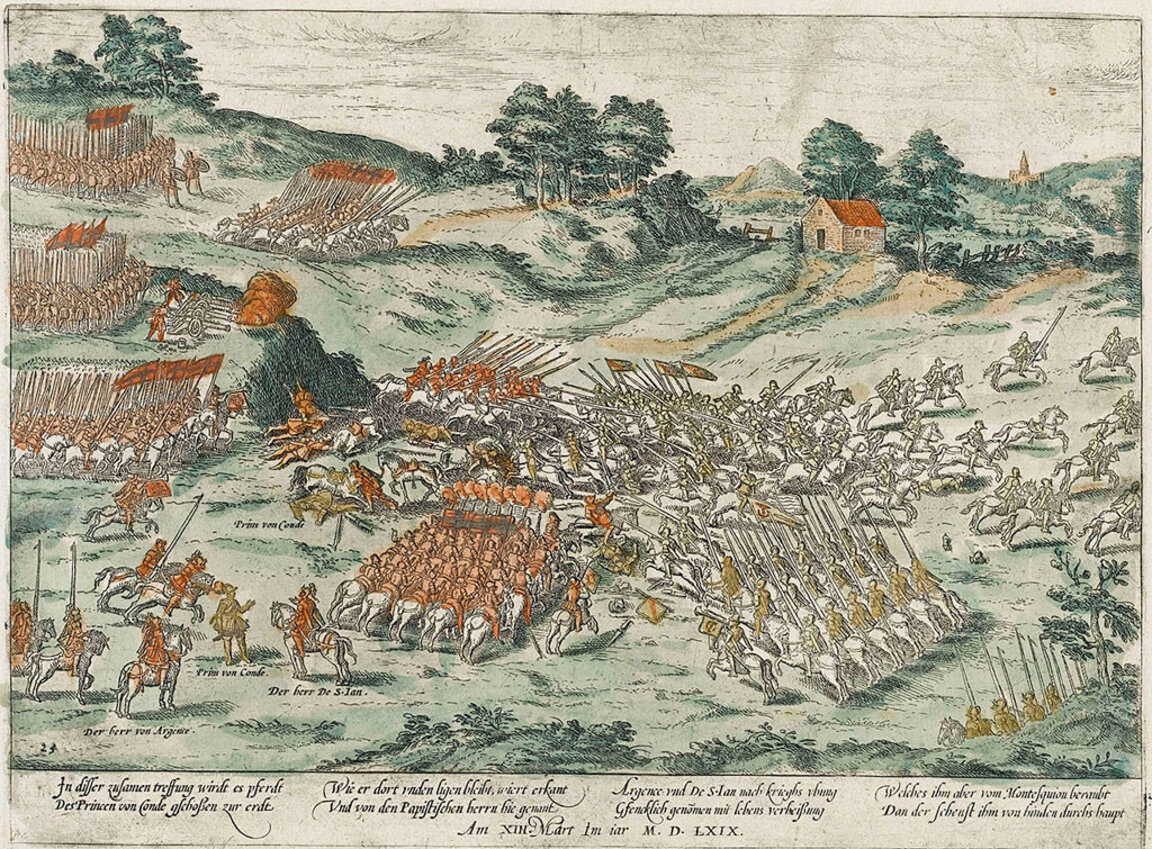 Prins von Conde
Prins von Conde.
Der herr De S. Ian.
Der herr von Argence
25
In disser zusamen treffung wirdt es pferdt
Des Princen von Conde gschoßen zur erdt
Wie er dort vnden ligen bleibt, wiert erkant
Vnd von den Papistischen herrn hie genant
Argence vnd De S. Ian nach kriegs vbung
Gfencklich genömen mit lebens verheißung
Welches ihm aber vom Montesquion beraubt
Dan der schenst ihm von hinden durchs haupt
Am XIII. Mart Im iar M. D. LXIX.